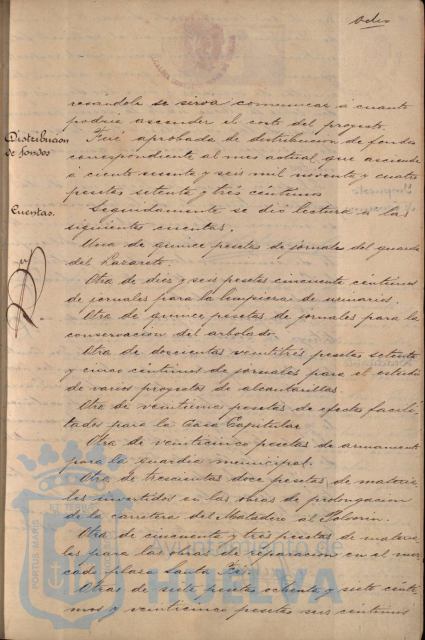 ocho
resándole se sirva comunicar á cuanto
podria ascender el coste del proyecto.
Distribución
de fondos
Fué aprobada la distribucion de fondos
correspondiente al mes actual que asciende
á ciento sesenta y seis mil noventa y cuatro
pesetas setenta y tres céntimos
Cuentas.
Seguidamente se dió lectura á las
siguientes cuentas.
Una de quince pesetas de jornales del guarda
del Lazareto.
Otra de diez y seis pesetas cincuenta céntimos
de jornales para la limpieza de urinarios.
Otra de quince pesetas de jornales para la
conservación del arbolado.
Otra de doscientas veintitrés pesetas setenta
y cinco céntimos de jornales para el estudio
de varios proyectos de alcantarillas.
Otra de veinticinco pesetas de efectos facili-
tados para la Casa Capitular
Otra de veinticinco pesetas de armamento
para la guardia municipal.
Otra de trescientas doce pesetas de materia-
les invertidos en las obras de prolongacion
de la carretera del Matadero al Polvorin.
Otra de cincuenta y tres pesetas de materia-
les para las obras de reparacion en el mer-
cado plaza Santa Fé.
Otras de siete pesetas ochenta y siete cénti-
mos y veinticinco pesetas seis céntimos
PORTUS MARIS
Ayuntamiento de
HUELVA